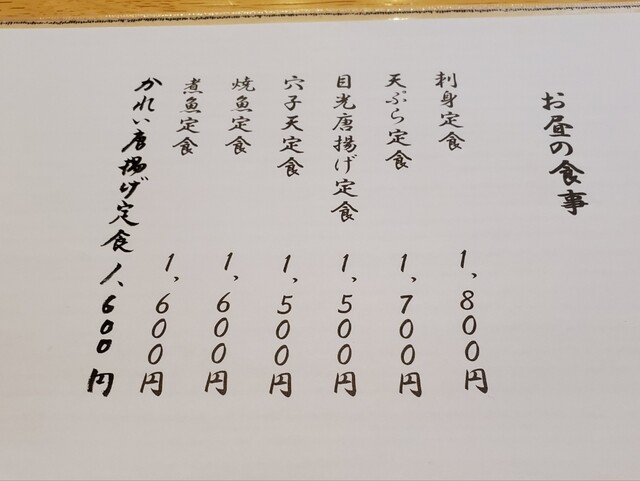 お昼の食事
刺身定食 1,800円
天ぷら定食 1,700円
目光唐揚げ定食 1,500円
穴子天定食 1,500円
焼魚定食 1,600円
煮魚定食 1,600円
かれい唐揚げ定食 1,600円